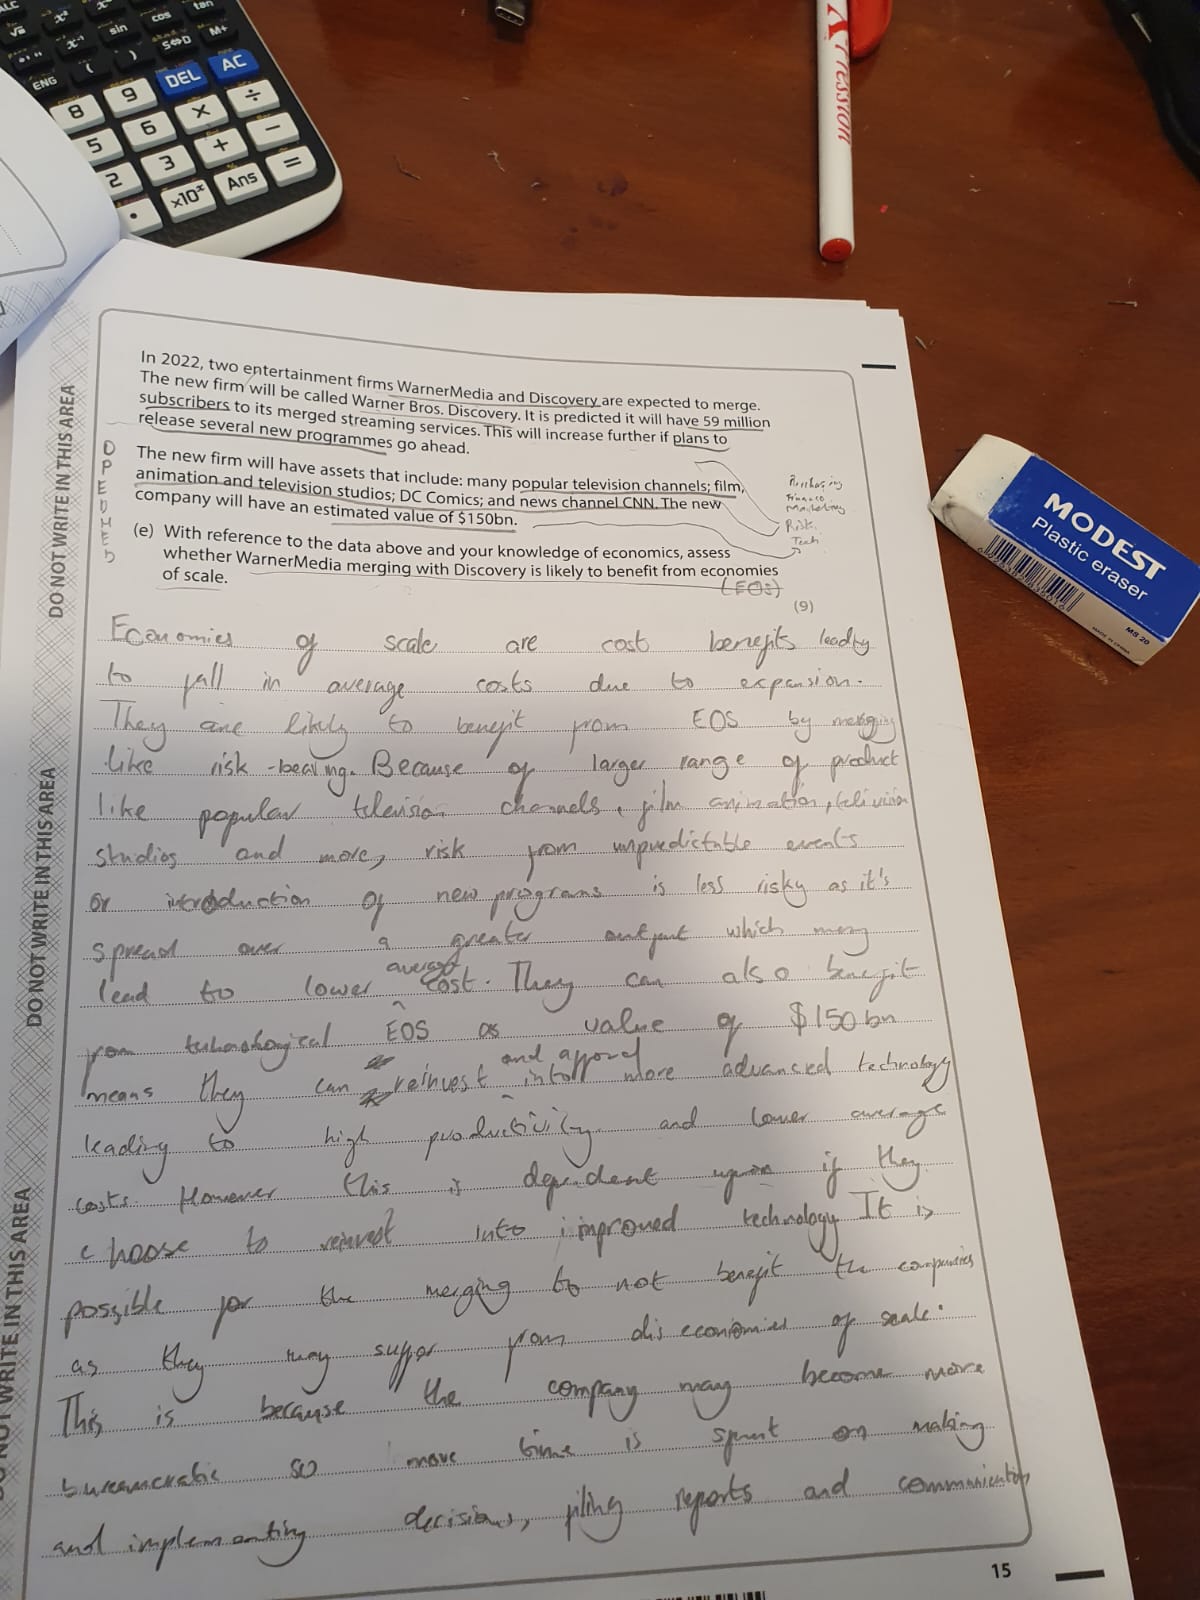 ALC
x²
cos
tan
sin
S⇔D
M+
ENG
(
)
DEL
AC
8
9
×
÷
5
6
+
−
2
3
=
•
×10ˣ
Ans
Xpression
MODEST
Plastic eraser
MADE IN CHINA
DO NOT WRITE IN THIS AREA
DO NOT WRITE IN THIS AREA
DO NOT WRITE IN THIS AREA
In 2022, two entertainment firms WarnerMedia and Discovery are expected to merge.
The new firm will be called Warner Bros. Discovery. It is predicted it will have 59 million
subscribers to its merged streaming services. This will increase further if plans to
release several new programmes go ahead.
The new firm will have assets that include: many popular television channels; film,
animation and television studios; DC Comics; and news channel CNN. The new
company will have an estimated value of $150bn.
Purchasing
Finance
Marketing
Risk
Tech
(e) With reference to the data above and your knowledge of economics, assess
whether WarnerMedia merging with Discovery is likely to benefit from economies
of scale.
(EOS)
(9)
Economies of scale are cost benefits leading
to fall in average costs due to expansion.
They are likely to benefit from EOS by merging
like risk-bearing. Because of larger range of product
like popular television channels, film animation, television
studios and more, risk from unpredictable events
or introduction of new programs is less risky as it's
spread over a greater output which may
lead to lower average cost. They can also benefit
from technological EOS as value of $150bn
means they can reinvest into and afford more advanced technology
leading to high productivity and lower average
costs. However this is dependent upon if they
choose to reinvest into improved technology It is
possible for the merging to not benefit the companies
as they may suffer from diseconomies of scale.
This is because the company may become more
bureaucratic so more time is spent on making
and implementing decisions, filing reports and communication
15